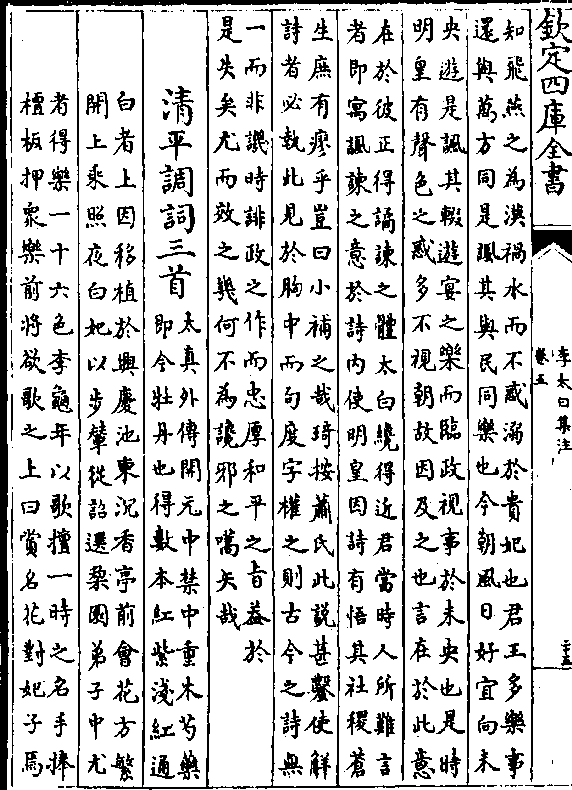 欽定四庫全書
李太白集注
卷五
二十五
知飛燕之為漢禍水而不惑溺於貴妃也君王多樂事
還與萬方同是諷其與民同樂也今朝風日好宜向未
央遊是諷其輟遊宴之樂而臨政視事於未央也是時
明皇有聲色之惑多不視朝故因及之也言在於此意
在於彼正得譎諫之體太白纔得近君當時人所難言
者即寓諷諫之意於詩內使明皇因詩有悟其社稷蒼
生庶有瘳乎豈曰小補之哉琦按蕭氏此說甚鑿使解
詩者必執此見於胸中而句度字權之則古今之詩無
一而非譏時誹政之作而忠厚和平之旨益於
是失矣尤而效之幾何不為讒邪之嚆矢哉
清平調詞三首
太真外傳開元中禁中重木芍藥
即今牡丹也得數本紅紫淺紅通
白者上因移植於興慶池東沉香亭前會花方繁
開上乘照夜白妃以步輦從詔選棃園弟子中尤
者得樂一十六色李龜年以歌擅一時之名手捧
檀板押衆樂前將欲歌之上曰賞名花對妃子焉